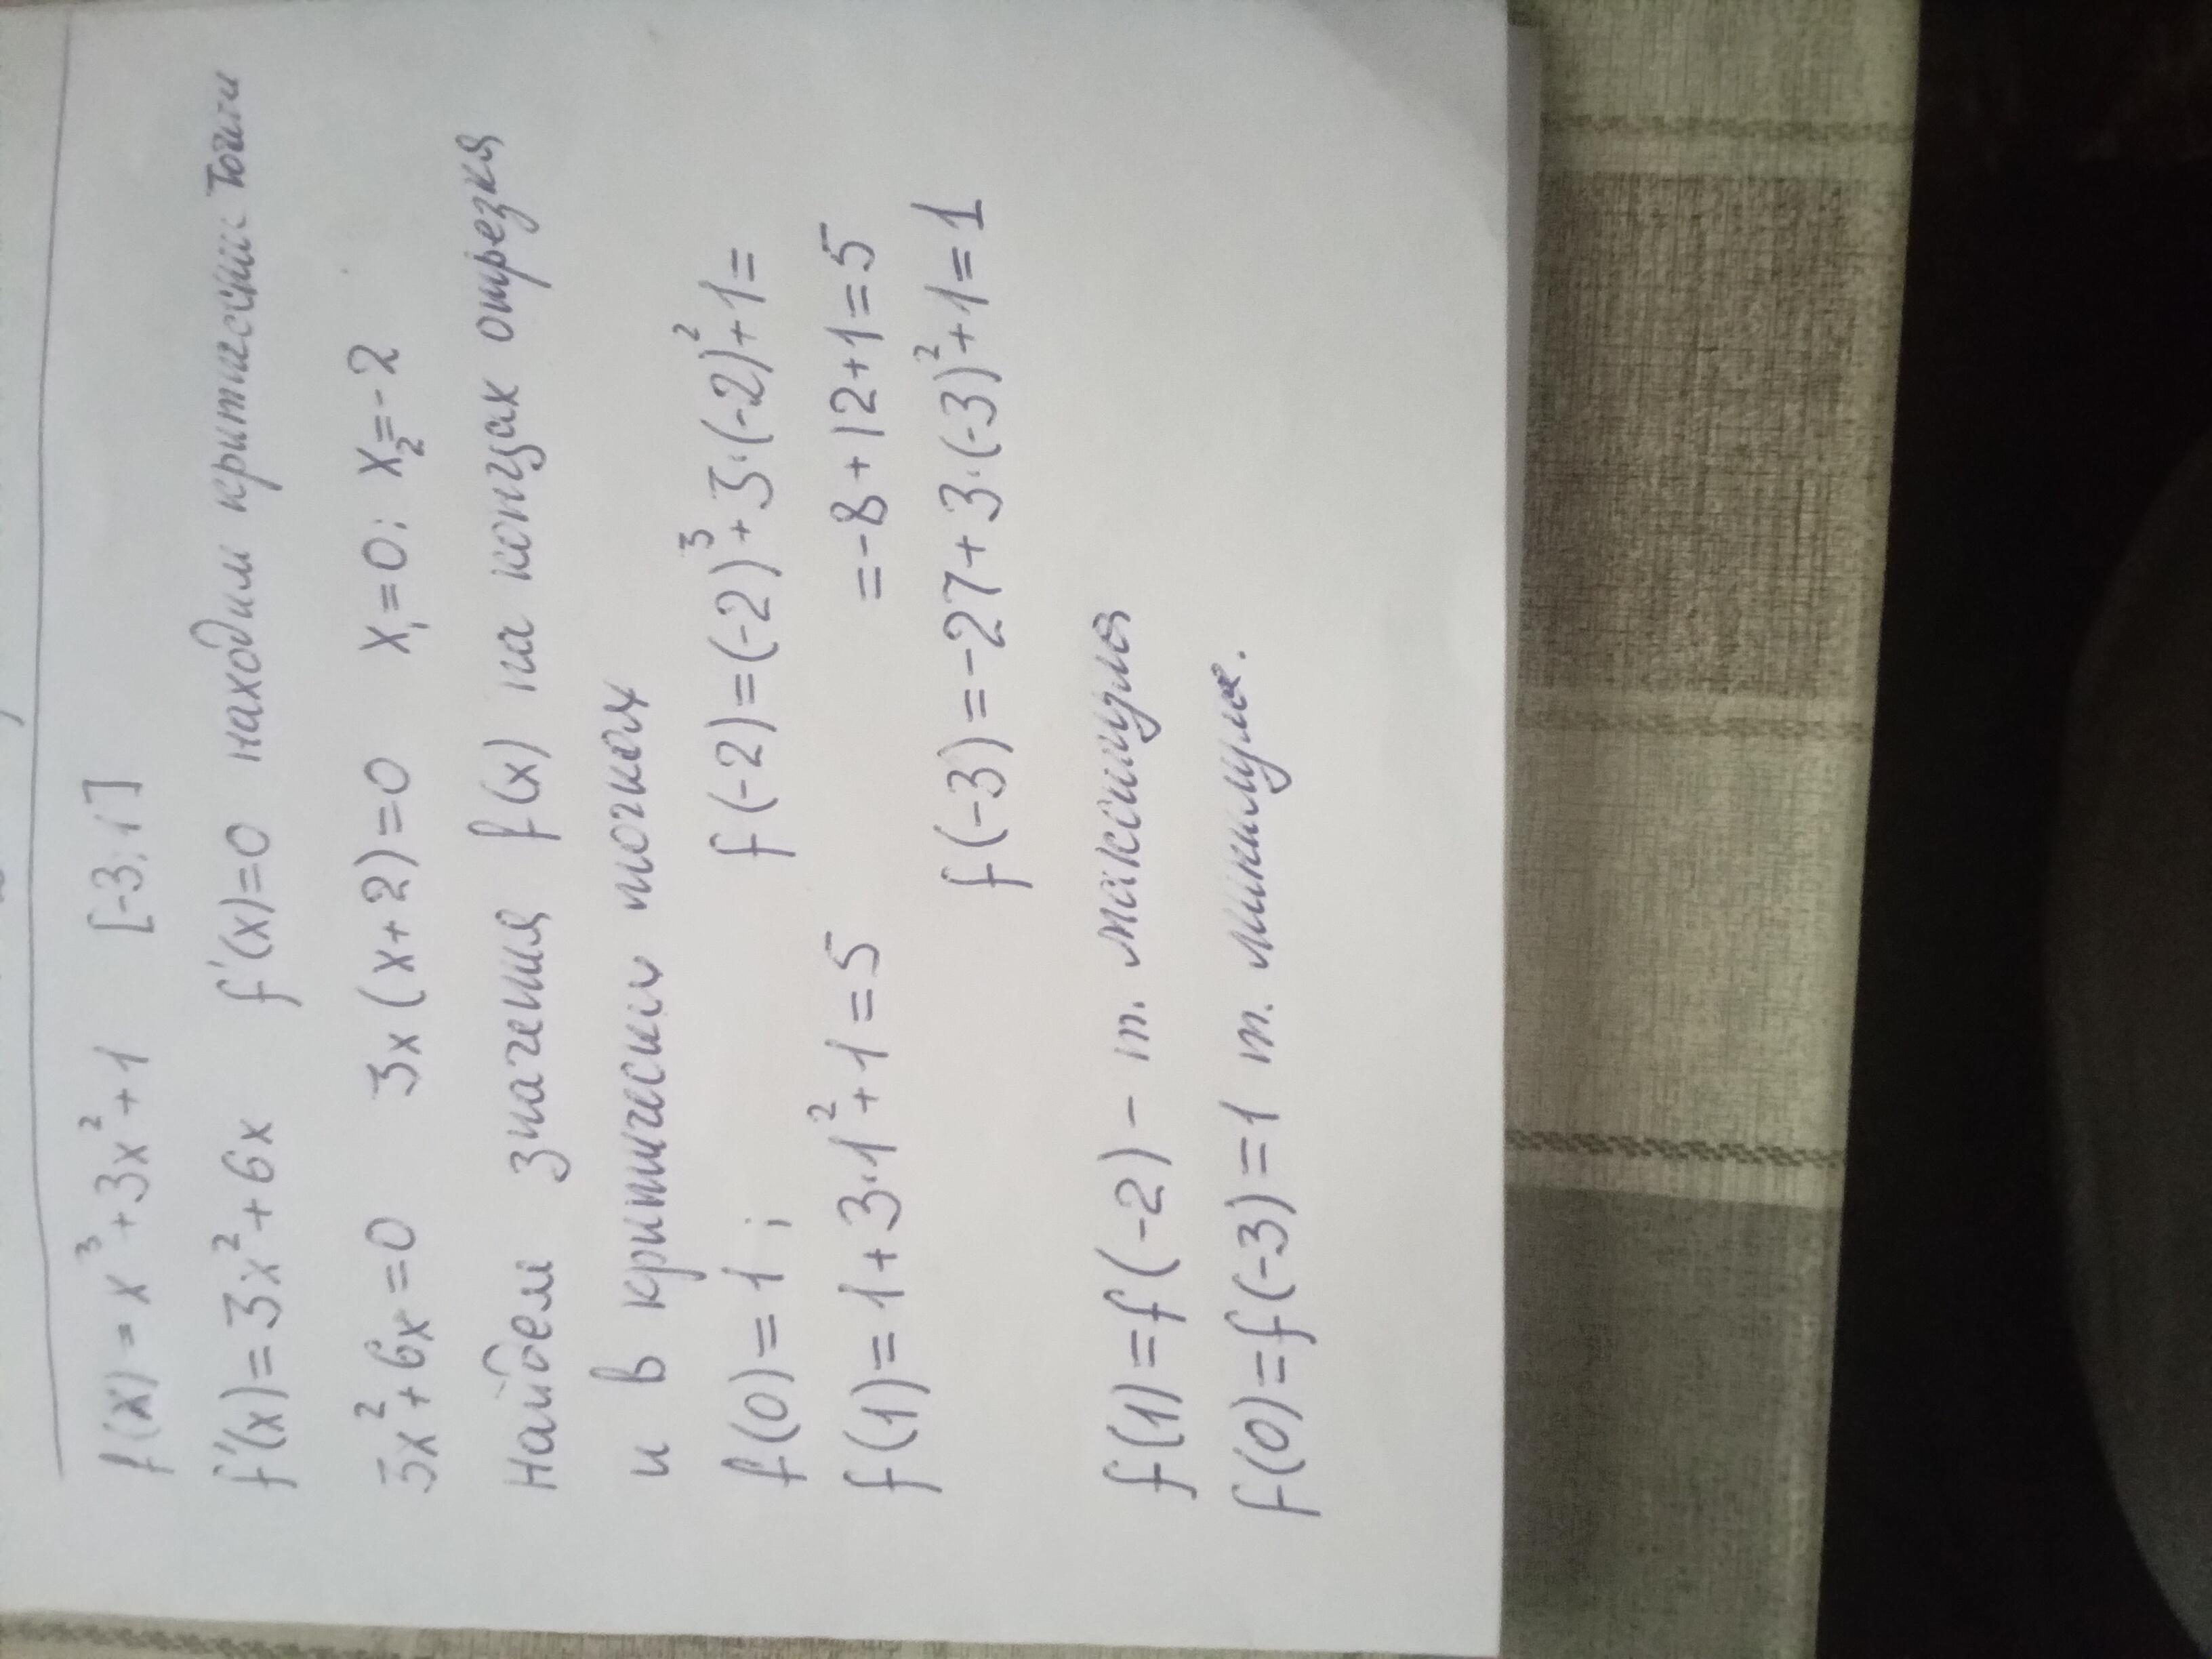 f(x) = x³+3x²+1 [-3;1]
f'(x)=3x²+6x f'(x)=0 находим критическии точки
3x²+6x=0 3x(x+2)=0 x₁=0; x₂=-2
Найдем значения f(x) на концах отрезка
и в критических точках
f(0)=1; f(-2)=(-2)³+3·(-2)²+1=
f(1)=1+3·1²+1=5 =-8+12+1=5
f(-3)=-27+3·(-3)²+1=1
f(1)=f(-2) – т. максимума
f(0)=f(-3)=1 т. минимума.